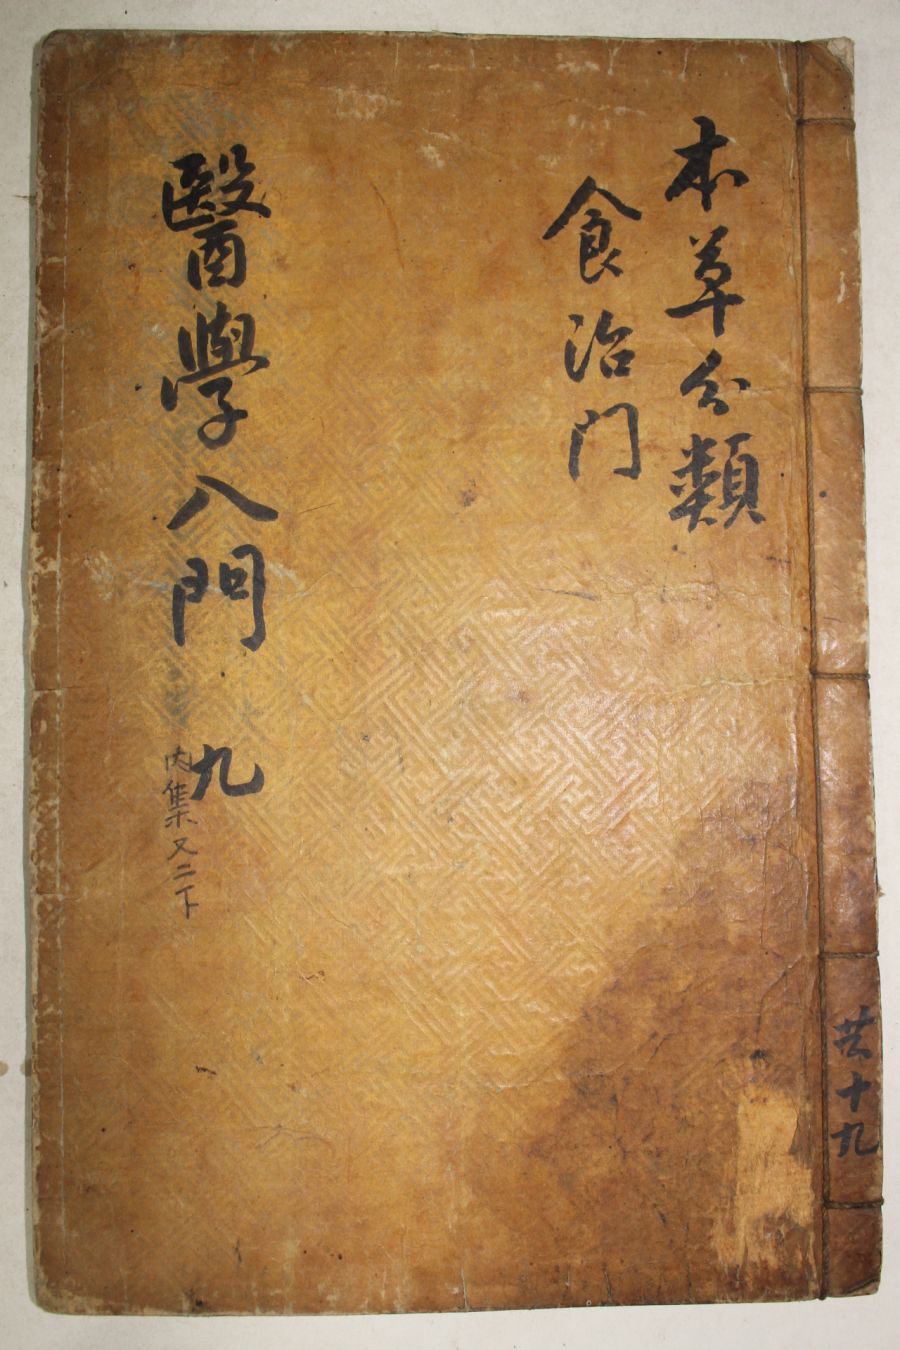 本草分類
食治门
醫學入門 九
內集又二下
共十九